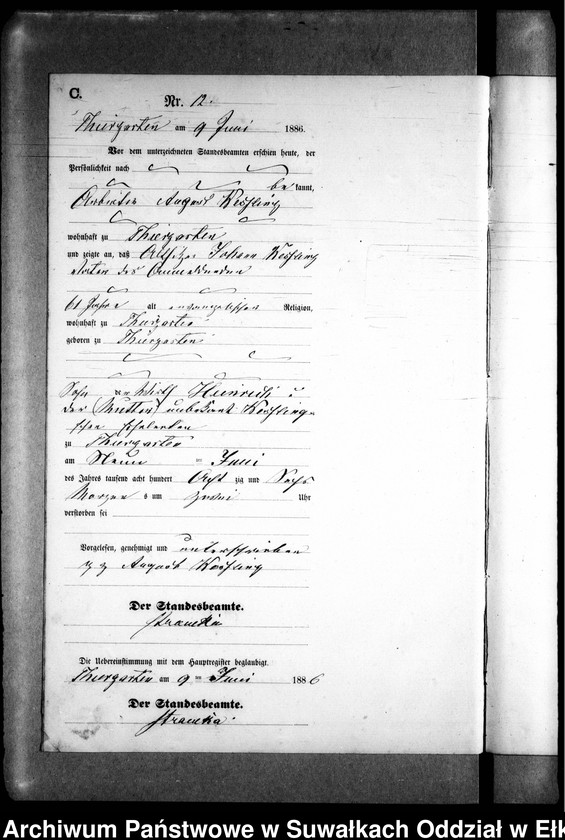 C.
Nr. 12.
Thiergarten am 9 Juni 1886.
Vor dem unterzeichneten Standesbeamten erschien heute, der
Persönlichkeit nach
be kannt,
Arbeiter August
wohnhaft zu Thiergarten
und zeigte an, daß Altsitzer Johann
des
61 Jahre alt evangelischer Religion,
wohnhaft zu Thiergarten
geboren zu Thiergarten
Sohn Wirth Heinrich u
der Mutter unbekannt
schen Eheleuten
zu Thiergarten
am Neun = Juni
des Jahres tausend acht hundert Acht zig und Sechs
Morgen s um zwei Uhr
verstorben sei
Vorgelesen, genehmigt und unterschrieben
gz August
Der Standesbeamte.
Die Uebereinstimmung mit dem Hauptregister beglaubigt.
Thiergarten am 9 = Juni 1886
Der Standesbeamte.
Archiwum Państwowe w Suwałkach Oddział w Ełk